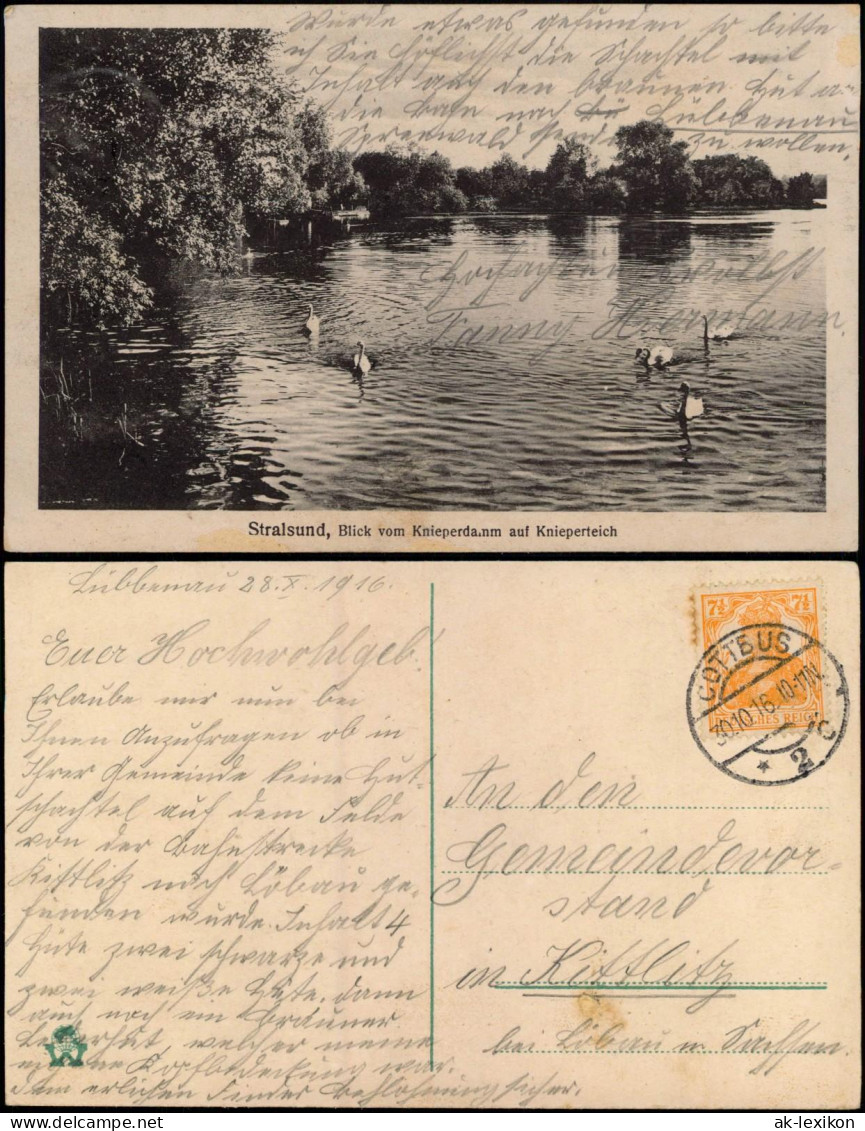 Wurde etwas gefunden so bitte
ich Sie höflichst die Schachtel mit
Inhalt auch den braunen Hut an
die Bahn nach Lübbenau
Spreewald senden zu wollen.
Hochachtungsvollst
Fanny Hermann.
Stralsund, Blick vom Knieperdamm auf Knieperteich
Lübbenau 28.X.1916.
Euer Hochwohlgeb!
Erlaube mir nun bei
Ihnen Anzufragen ob in
Ihrer Gemeinde keine Hut-
schachtel auf dem Felde
von der Bahnstrecke
Kittlitz nach Löbau ge-
funden wurde. Inhalt 4
Hüte zwei schwarze und
zwei weiße Hüte, dann
auch noch ein Brauner
welcher meine
Kopfbedeckung war.
Dem ehrlichen Finder Belohnung sicher.
7½ 7½
COTTBUS
30.10.16. 10-11N.
* 2
An den
Gemeindevor-
stand
in Kittlitz
bei Löbau in Sachsen.
ak-lexikon